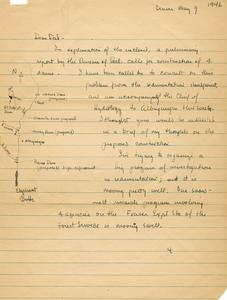 Denver, May 9
1946
Dear Dad -
In explanation of the enclosed, a preliminary
report by the Bureau of Recl. calls for construction of 4
dams. I have been called in to consult on this
problem from the sedimentation standpoint,
and am accompanying the Chief of
Hydrology to Albuquerque this week.
I thought you would be interested
in a brief of my thoughts on the
proposed construction.
I'm trying to organize a
big program of investigation
in sedimentation, and it is
moving pretty well. Our
program involving
4 agencies on the Fraser Exptl Sta of the
Forest Service is moving swell.
N
(proposed)
(proposed)
Albuquerque
Dam
(proposed)
Elephant
Butte